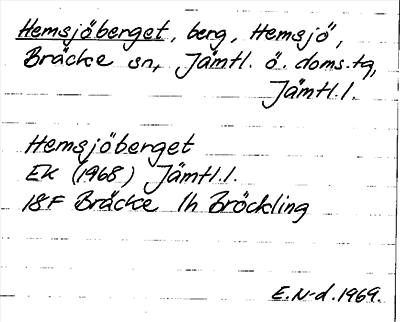 Hemsjöberget, berg, Hemsjö,
Bräcke sn, Jämtl. ö. doms.tg,
Jämtl.l.
Hemsjöberget
EK (1968) Jämtl.l.
18F Bräcke 1h Bröckling
E.N-d.1969.